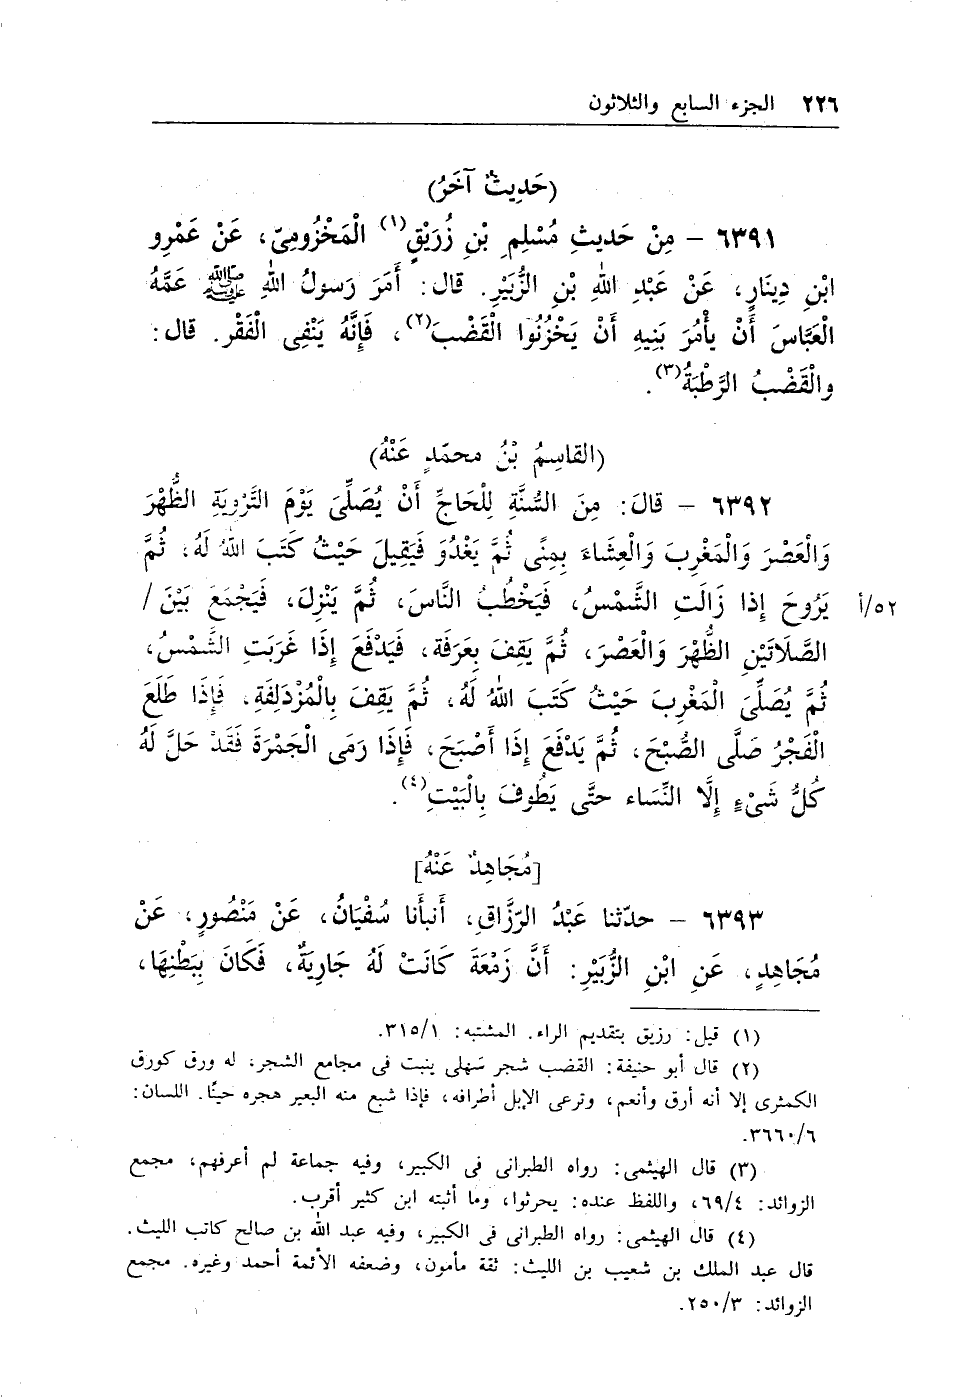 ٢٢٦ الجزء السابع والثلاثون
(حَدِيثٌ آخَرُ)
٦٣٩١ - مِنْ حَديثِ مُسْلِمِ بْنِ زُرَيْقٍ(١) الْمَخْزُومِىّ، عَنْ عَمْرِو
ابْنِ دِينَارٍ، عَنْ عَبْدِ اللهِ بْنِ الزُّبَيْرِ. قال: أَمَرَ رَسولُ اللهِ ﷺ عَمَّهُ
الْعَبَّاسَ أَنْ يأْمُرَ بَنِيهِ أَنْ يَحْزُنُوا الْقَضْبَ(٢)، فَإِنَّهُ يَنْفِى الْفَقْر. قال:
والْقَضْبُ الرَّطْبَةُ(٣).
(القاسِمُ بْنُ محمّدٍ عَنْهُ)
٦٣٩٢ - قالَ: مِنَ السُّنَّةِ لِلْحَاجِّ أَنْ يُصَلِّىَ يَوْمَ التَّرْوِيَةِ الظُّهْرَ
وَالْعَصْرَ وَالْمَغْرِبَ وَالْعِشَاءَ بِمِنًى ثُمَّ يَغْدُوَ فَيَقِيلَ حَيْثُ كَتَبَ اللهُ لَهُ، ثُمَّ
يَرُوحَ إِذا زَالَتِ الشَّمْسُ، فَيَخْطُبُ النَّاسَ، ثُمَّ يَنْزِلَ، فَيَجْمَعَ بَيْنَ / ٥٢/أ
الصَّلَاتَيْنِ الظُّهْرَ وَالْعَصْرَ، ثُمَّ يَقِفَ بِعَرَفَة، فَيَدْفَعَ إِذَا غَرَبَتِ الشَّمْسُ،
ثُمَّ يُصَلِّىَ الْمَغْرِبَ حَيْثُ كَتَبَ اللهُ لَهُ، ثُمَّ يَقِفَ بِالْمُزْدَلِفَةِ، فَإِذَا طَلَعَ
الْفَجْرُ صَلَّى الصُّبْحَ، ثُمَّ يَدْفَعَ إِذَا أَصْبَحَ، فَإِذَا رَمَى الْجَمْرَةَ فَقَدْ حَلَّ لَهُ
كُلُّ شَىْءٍ إِلَّا النِّسَاء حتَّى يَطُوفَ بِالْبَيْتِ(٤).
[مُجَاهِدٌ عَنْهُ]
٦٣٩٣ - حدّثنا عَبْدُ الرّزَّاقِ، أَنبأَنا سُفْيَانُ، عَنْ مَنْصُورٍ، عَنْ
مُجَاهِدٍ، عَنِ ابْنِ الزُّبَيْرِ: أَنَّ زَمْعَةَ كَانَتْ لَهُ جَارِيَةٌ، فَكَانَ بِبَطْنِهَا،
(١) قيل: رزيق بتقديم الراء. المشتبه: ٣١٥/١.
(٢) قال أبو حنيفة: القضب شجر سَهلى ينبت فى مجامع الشجر، له ورق كورق
الكمثرى إلا أنه أرق وأنعم، وترعى الإبل أطرافه، فإذا شبع منه البعير هجره حينًا. اللسان:
٣٦٦٠/٦.
(٣) قال الهيثمى: رواه الطبرانى فى الكبير، وفيه جماعة لم أعرفهم، مجمع
الزوائد: ٦٩/٤، واللفظ عنده: يحرثوا، وما أثبته ابن كثير أقرب.
(٤) قال الهيثمى: رواه الطبرانى فى الكبير، وفيه عبد الله بن صالح كاتب الليث.
قال عبد الملك بن شعيب بن الليث: ثقة مأمون، وضعفه الأئمة أحمد وغيره. مجمع
الزوائد: ٢٥٠/٣.